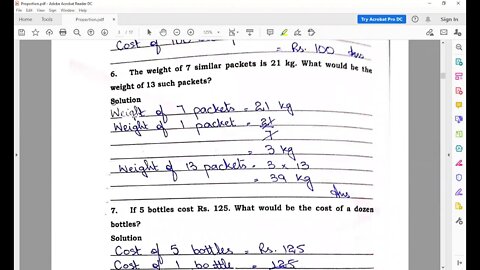 Proportion.pdf - Adobe Acrobat Reader DC
File Edit View Sign Window Help
Home Tools Proportion.pdf
Try Acrobat Pro DC
Sign In
= Rs. 100 Ans
6. The weight of 7 similar packets is 21 kg. What would be the
weight of 13 such packets?
Solution
Weight of 7 packets = 21 kg
Weight of 1 packet = 21
7
= 3 kg
Weight of 13 packets = 3 × 13
= 39 kg
Ans
7. If 5 bottles cost Rs. 125. What would be the cost of a dozen
bottles?
Solution
Cost of 5 bottles = Rs. 125
Cost of 1 bottle = 125